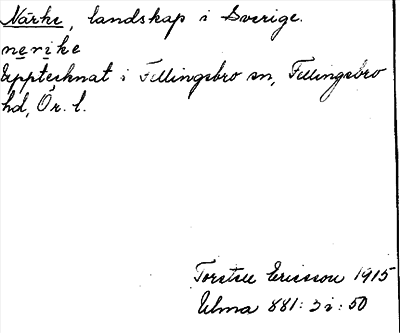 Närke, landskap i Sverige.
nerike
Upptecknat i Fellingsbro sn, Fellingsbro
hd, Ör. l.
Torsten Ericsson 1915
Ulma 881:3 i: 50